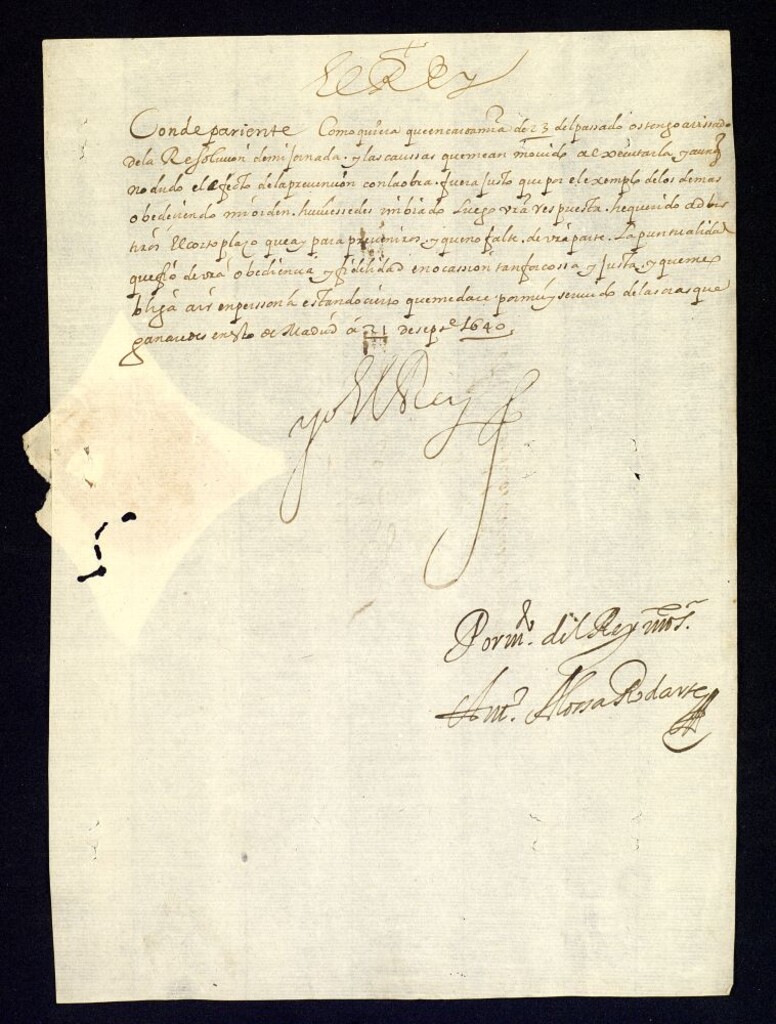 El Rey
Conde pariente Como quiera que en carta mia de 23 del passado os tengo avissado
de la Resoluçion de mi jornada. y las caussas que me an movido a executarla y aunq
no dudo el efecto de la prevençion con la obra. fuera justo que por el exemplo de los demas
obedeçiendo mi orden. huviessedes imbiado luego vrã respuesta. he querido adver
tiros El corto plaço que ay para preveniros. y que no falte. de vrã parte. La puntualidad
que fio de vrã obediençia y fidelidad en ocassion tan forcossa y Justa. y que me o
bliga a ir en perssona estando cierto que me dare por muy servido de las oras que
ganaredes en esto de Madrid á 21 de septe 1640
yo El Rey
Por mdo. del Rey nros.r
Anto. Alossa Rodarte